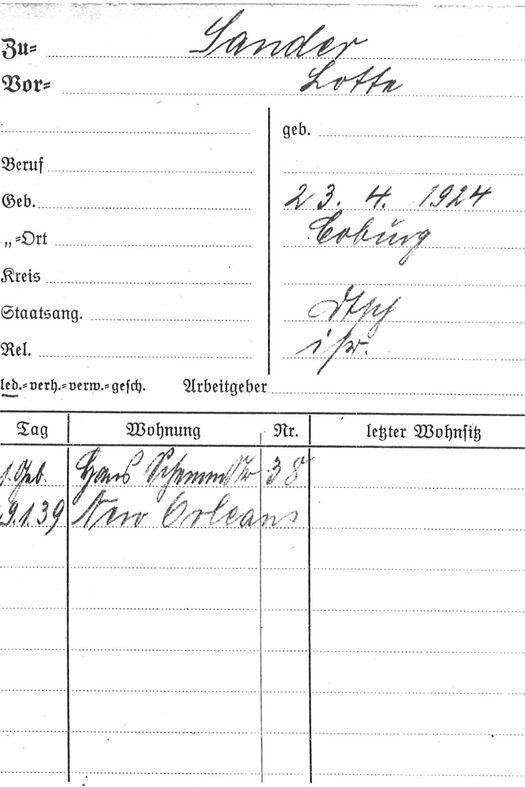 Zu= Sander
Vor= Lotte
geb.
Beruf
Geb. 23. 4. 1924
„=Ort Coburg
Kreis
Staatsang. dtsch
Rel. isr.
led.=verh.=verw.=gesch. Arbeitgeber
Tag Wohnung Nr. letzter Wohnsitz
Geb. Hans Schemmstr 38
9.1.39 New Orleans